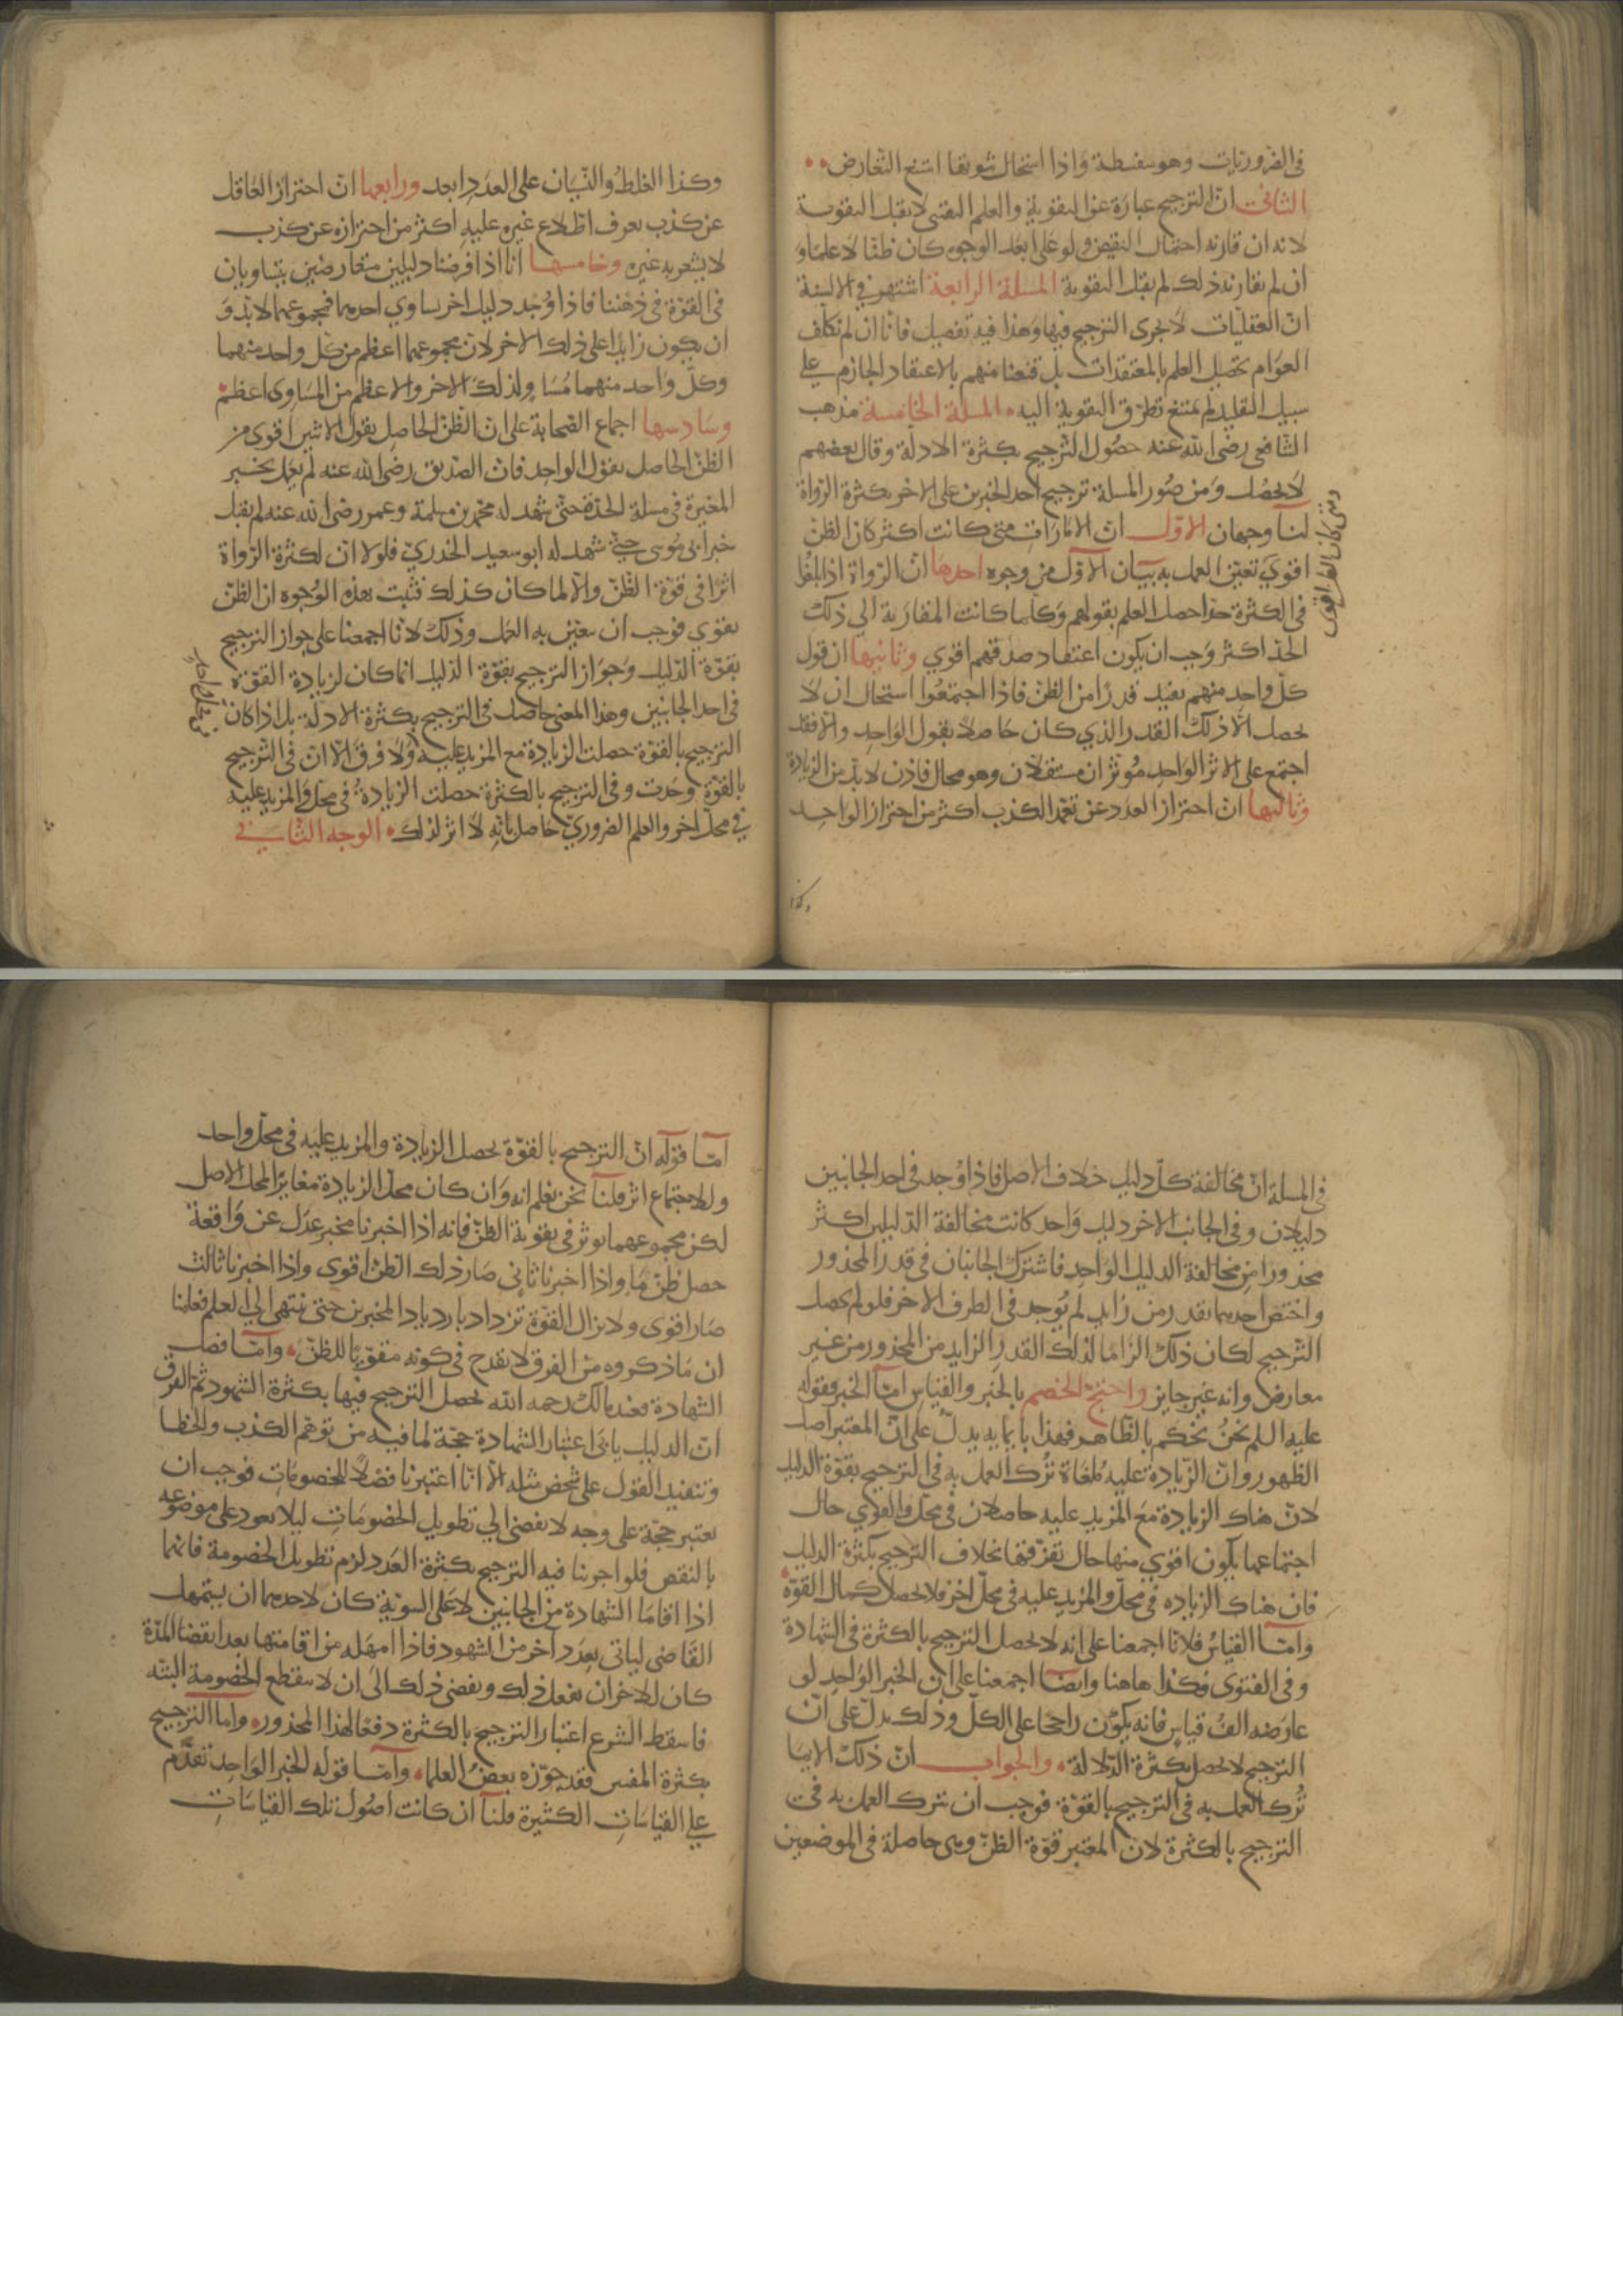 في الضروريات وهو سفسطة واذا استحال ثبوتها امتنع التعارض
الثاني ان الترجيح عبارة عن التقوية والعلم اليقيني لا يقبل التقوية
لانه ان قارنه احتمال النقيض ولو على ابعد الوجوه كان ظنا لا علما و
ان لم يقارنه ذلك لم يقبل التقوية المسلة الرابعة اشتهر في الالسنة
ان العقليات لا يجرى الترجيح فيها وهذا فيه تفصيل فانا ان لم نكلف
العوام تحصيل العلم بالمعتقدات بل قنعنا منهم بالاعتقاد الجازم على
سبيل التقليد لم يمتنع تطرق التقوية اليه المسلة الخامسة مذهب
الشافعي رضى الله عنه حصول الترجيح بكثرة الادلة وقال بعضهم
لا يحصل ومن صور المسلة ترجيح احد الخبرين على الاخر بكثرة الرواة
لنا وجهان الاول ان الامارات متى كانت اكثر كان الظن
ومتى كان الظن اقوى
اقوي تعين العمل به بيان الاول من وجوه احدها ان الرواة اذا بلغوا
في الكثرة حدا حصل العلم بقولهم وكلما كانت المقاربة الي ذلك
الحد اكثر وجب ان يكون اعتقاد صدقهم اقوي وثانيها ان قول
كل واحد منهم يفيد قدرا من الظن فاذا اجتمعوا استحال ان لا
يحصل الا ذلك القدر الذي كان حاصلا بقول الواحد والا فقد
اجتمع على الاثر الواحد موثران مستقلان وهو محال فاذن لا بد من الزيادة
وثالثها ان احتراز العدد عن تعمد الكذب اكثر من احتراز الواحد
وكذا
وكذا الغلط والنسيان على العدد ابعد ورابعها ان احتراز العاقل
عن كذب يعرف اطلاع غيره عليه اكثر من احترازه عن كذب
لا يشعر به غيره وخامسها انا اذا فرضنا دليلين متعارضين يتساويان
في القوة في ذهننا فاذا وجد دليل اخر يساوي احدهما فمجموعهما لا بد و
ان يكون زايدا على ذلك الاخر لان مجموعهما اعظم من كل واحد منهما
وكل واحد منهما مساو لذلك الاخر والاعظم من المساوى اعظم
وسادسها اجماع الصحابة على ان الظن الحاصل بقول الاثنين اقوى من
الظن الحاصل بقول الواحد فان الصديق رضى الله عنه لم يعمل بخبر
المغيرة في مسلة الجدة حتى شهد له محمد بن مسلمة وعمر رضى الله عنه لم يقبل
خبر ابي موسى حتى شهد له ابو سعيد الخدري فلولا ان لكثرة الرواة
اثرا في قوة الظن والا لما كان كذلك فثبت بهذه الوجوه ان الظن
يقوي فوجب ان يتعين به العمل وذلك لانا اجمعنا على جواز الترجيح
بقوة الدليل وجواز الترجيح بقوة الدليل انما كان لزيادة القوة
في احد الجانبين وهذا المعنى حاصل في الترجيح بكثرة الادلة بل اذا كان
الترجيح بالقوة حصلت الزيادة مع المزيد عليه ولا فرق الا ان في الترجيح
بالقوة وجدت وفي الترجيح بالكثرة حصلت الزيادة في محل والمزيد عليه
في محل اخر والعلم الضروري حاصل بانه لا اثر لذلك الوجه الثاني
في المسلة ان مخالفة كل دليل خلاف الاصل فاذا وجد في احد الجانبين
دليلان وفي الجانب الاخر دليل واحد كانت مخالفة الدليلين اكثر
محذورا من مخالفة الدليل الواحد فاشترك الجانبان في قدر المحذور
واختص احدهما بقدر من زايد لم يوجد في الطرف الاخر فلو لم يحصل
الترجيح لكان ذلك التزاما لذلك القدر الزايد من المحذور من غير
معارض وانه غير جايز واحتج الخصم بالخبر والقياس اما الخبر فقوله
عليه السلم نحن نحكم بالظاهر فهذا بايمايه يدل على ان المعتبر اصل
الظهور وان الزيادة عليه ملغاة ترك العمل به في الترجيح بقوة الدليل
لان هناك الزيادة مع المزيد عليه حاصلان في محل والقوي حال
اجتماعها يكون اقوي منها حال تفرقها بخلاف الترجيح بكثرة الدليل
فان هناك الزياده في محل والمزيد عليه في محل اخر فلا يحصل كمال القوة
واما القياس فلانا اجمعنا على انه لا يحصل الترجيح بالكثرة في الشهادة
وفي الفتوى فكذا هاهنا وايضا اجمعنا على ان الخبر الواحد لو
عارضه الف قياس فانه يكون راجحا على الكل وذلك يدل على ان
الترجيح لا يحصل بكثرة الدلالة والجواب ان ذلك الايما
ترك العمل به في الترجيح بالقوة فوجب ان نترك العمل به في
الترجيح بالكثرة لان المعتبر قوة الظن وهي حاصلة في الموضعين
اما قوله ان الترجيح بالقوة يحصل الزيادة والمزيد عليه في محل واحد
وللاجتماع اثر قلنا نحن نعلم انه وان كان محل الزيادة مغايرا لمحل الاصل
لكن مجموعهما يوثر في تقوية الظن فانه اذا اخبرنا مخبر عدل عن واقعة
حصل ظن ما واذا اخبرنا ثاني صار ذلك الظن اقوى واذا اخبرنا ثالث
صار اقوى ولا يزال القوة تزداد بازدياد المخبرين حتى تنتهى الي العلم فعلمنا
ان ما ذكروه من الفرق لا يقدح في كونه مقويا للظن واما فصل
الشهادة فعند مالك رحمه الله يحصل الترجيح فيها بكثرة الشهود ثم الفرق
ان الدليل يابى اعتبار الشهادة حجة لما فيه من توهم الكذب والخطا
وتنفيذ القول على شخص مثله الا انا اعتبرنا فصلا للخصومات فوجب ان
تعتبر حجة على وجه لا يفضي الي تطويل الخصومات ليلا يعود على موضوعه
بالنقض فلو اجرينا فيه الترجيح بكثرة العدد لزم تطويل الخصومة فانهما
اذا اقاما الشهادة من الجانبين لا على السوية كان لاحدهما ان يستمهل
القاضى لياتى بعدد اخر من الشهود فاذا امهله من اقامتها بعد انقضا المدة
كان للاخر ان يفعل ذلك ويفضي ذلك الى ان لا ينقطع الخصومة البته
فاسقط الشرع اعتبار الترجيح بالكثرة دفعا لهذا المحذور واما الترجيح
بكثرة المفتين فقد جوزه بعض العلما واما قوله الخبر الواحد تقدم
على القياسات الكثيرة قلنا ان كانت اصول تلك القياسات